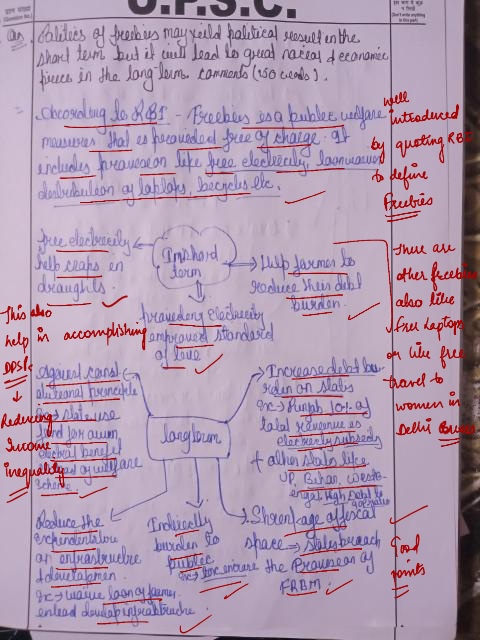 U.P.S.C.
Politics of freebies may yeild political result in the
short term but it will lead to great social & economic
prices in the long-term. comments (150 words).
According to RBI - Freebies is a public welfare
measures that is provided free of charge. It
includes provision like free electricity, loan waiver
distribution of laptops, bicycles etc.
well
introduced
by quoting RBI
to define
Freebies
Free electricity
help crops in
draughts.
In short
term
Help farmer to
reduce their debt
burden.
Providing electricity
improved standard
of
There are
other freebies
also like
Free Laptops
or like free
travel to
women in
Delhi Buses
This also
help in accomplishing
DPSPs
Reducing
Income
inequality
Against const
itutional principle
state use
fund for
electoral benefit
of welfare
scheme
long term
Increase debt bu-
rden on states
Ex:- Punjab 10% of
total revenue is
electricity subsidy
+ other states like
UP, Bihar, West
High Debt to
Reduce the
expenditure
on infrastructure
& developmen
Ex:- waive loan of farmer
instead develop infrastructure
Indirectly
burden to
public
Ex:- tax increase
Shrinkage of fiscal
space → states breach
the Provision of
FRBM
Good
points